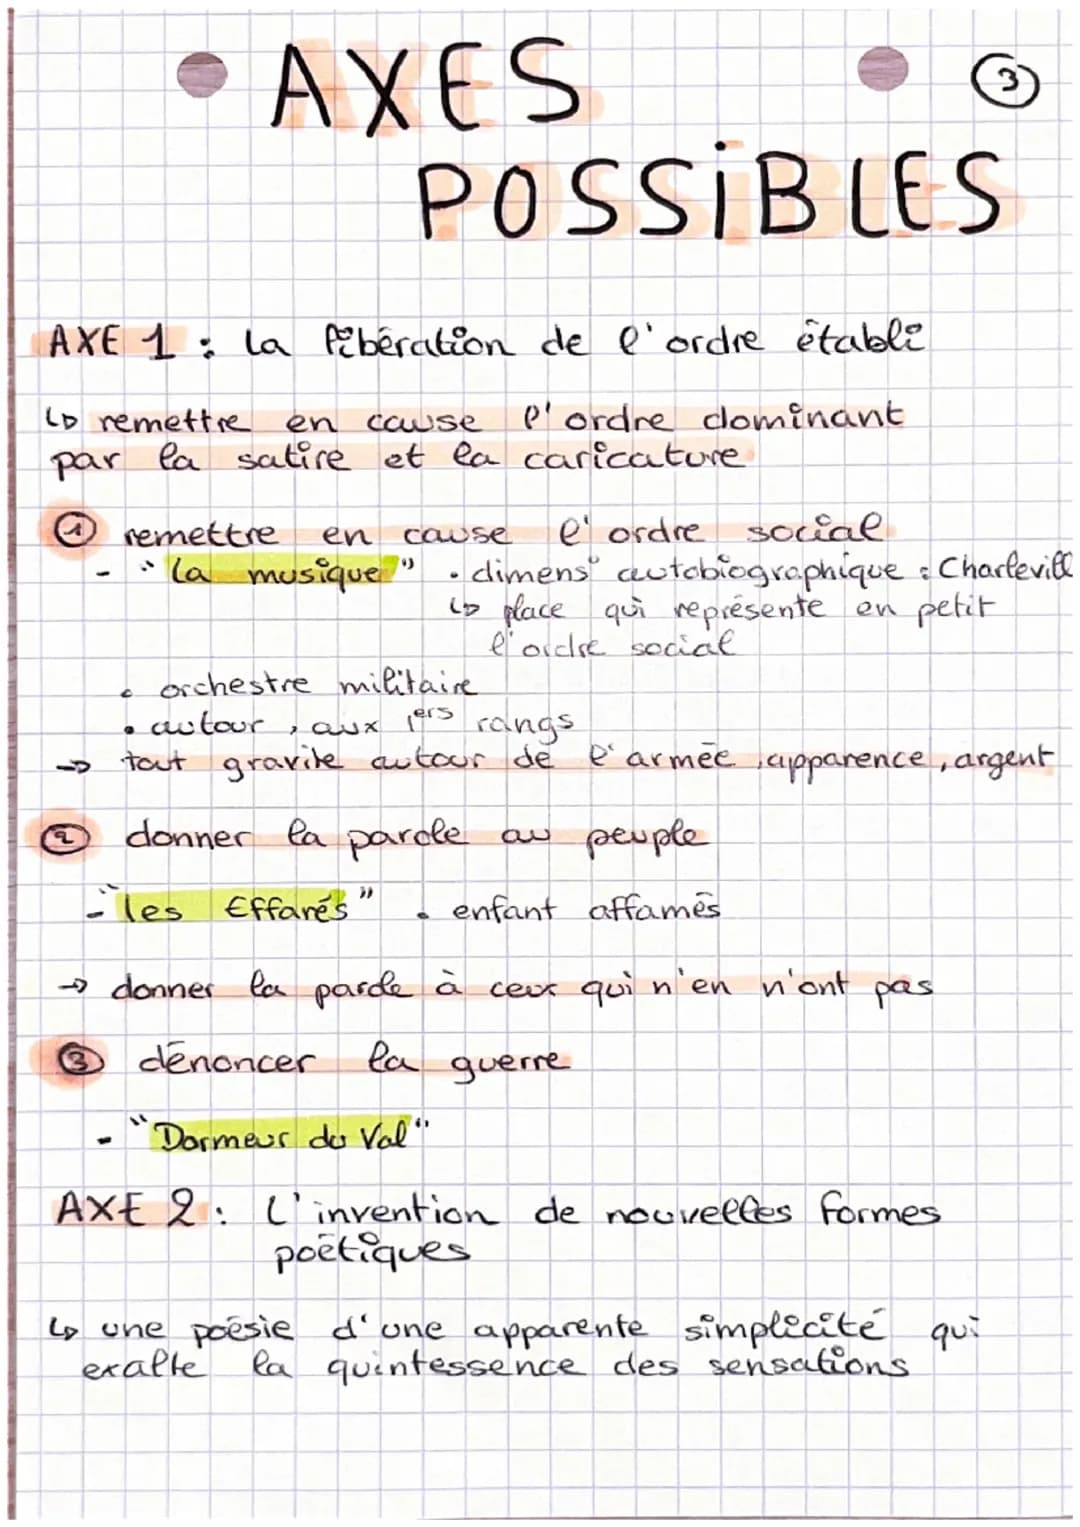 • AXES
③
POSSiBLES
AXE 1 : La libération de l'ordre établi
↳ remettre en cause l'ordre dominant
par la satire et la caricature
① remettre en cause l'ordre social
- "La musique" . dimens° autobiographique : Charlevill
↳ place qui représente en petit
l'ordre social
• orchestre militaire
• autour, aux 1ers rangs
→ tout gravite autour de l'armée, apparence, argent
② donner la parole au peuple
- "les Effarés" . enfant affamés
→ donner la parole à ceux qui n'en n'ont pas
③ dénoncer la guerre
- "Dormeur du Val"
AXE 2 : L'invention de nouvelles formes
poétiques
↳ une poésie d'une apparente simplicité qui
exalte la quintessence des sensations